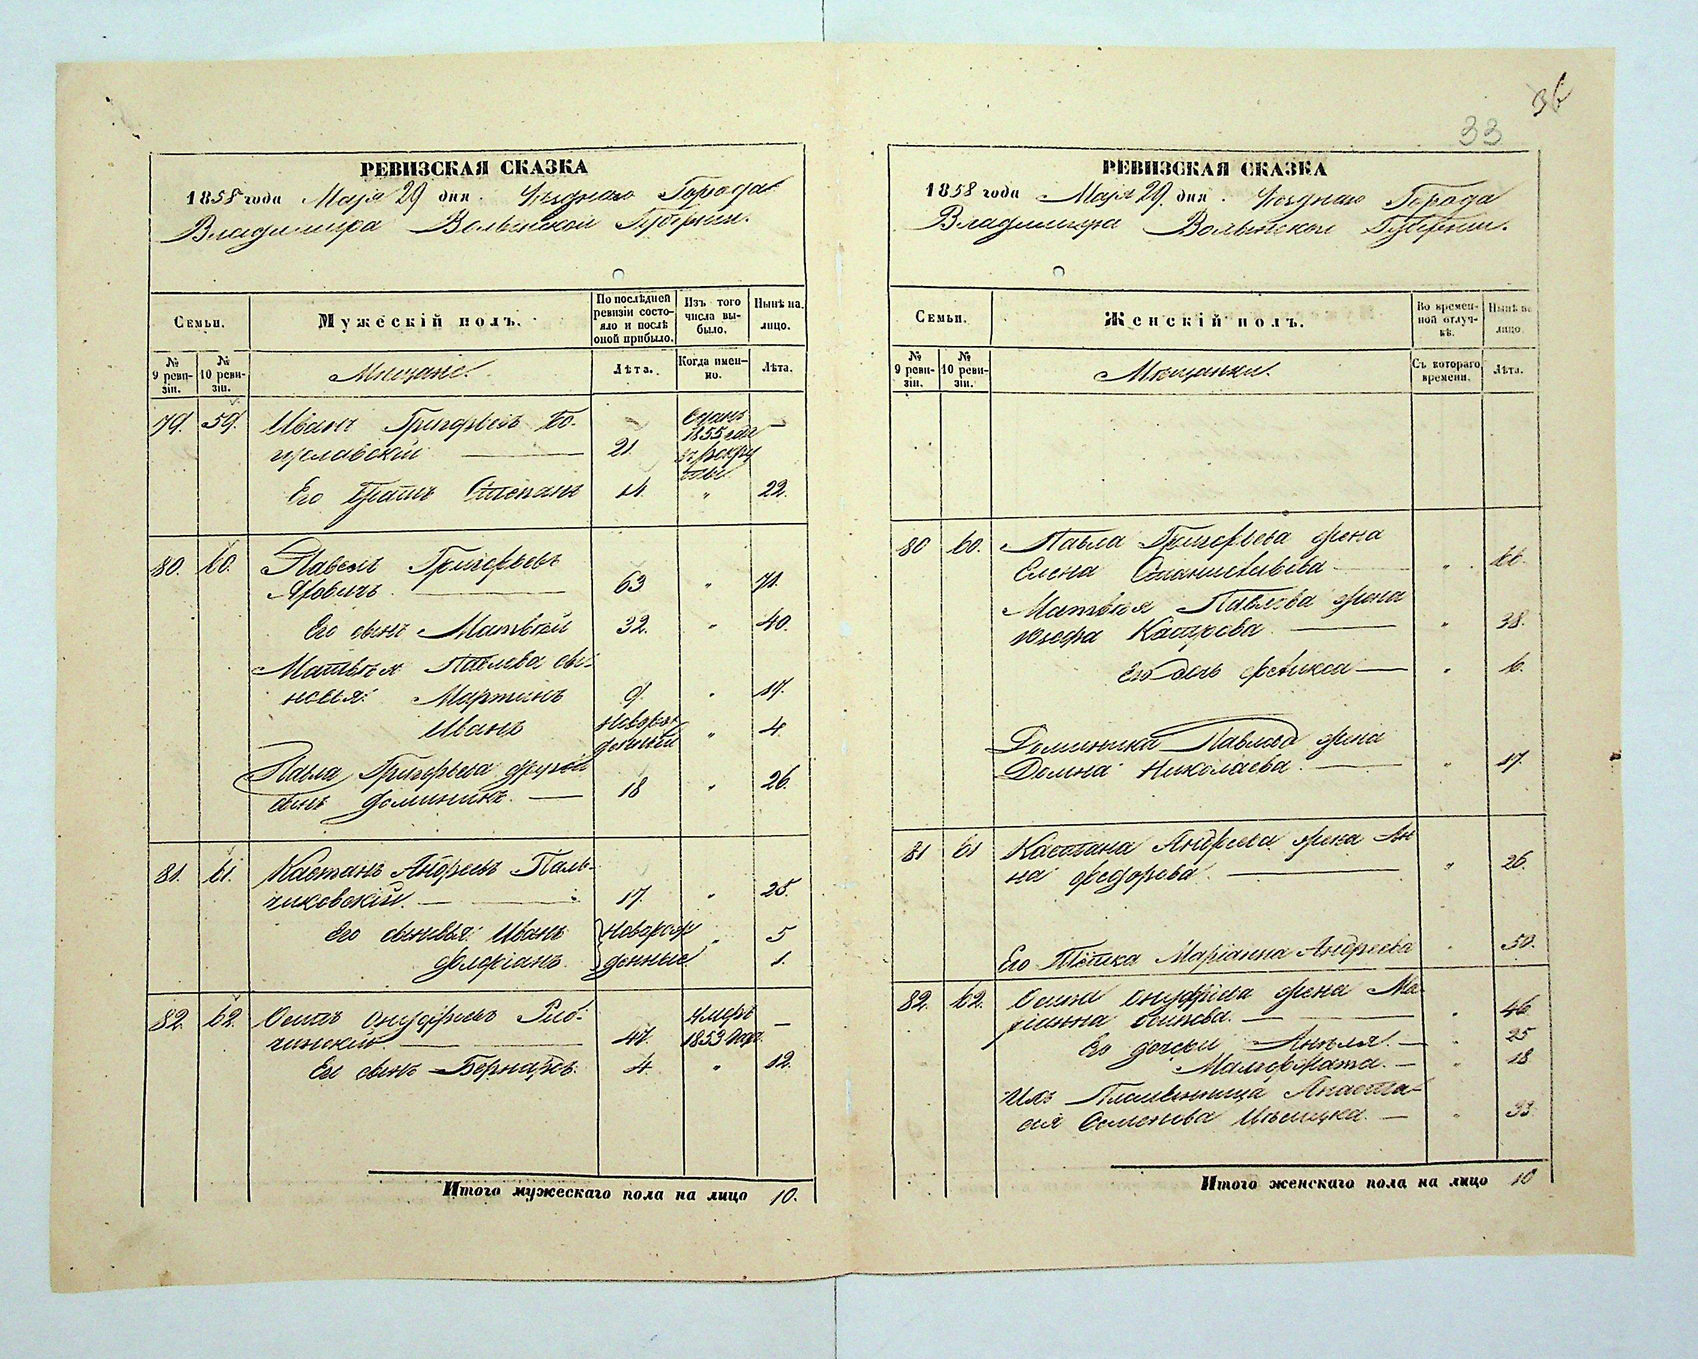 36
33
РЕВИЗСКАЯ СКАЗКА
1858 года Мая 29 дня. Уѣзднаго Города
Владимира Волынской Губерніи.
Семьи.
Мужескій полъ.
По послѣдней ревизіи состояло и послѣ оной прибыло.
Изъ того числа выбыло.
Нынѣ на лицо.
№ 9 ревизіи.
№ 10 ревизіи.
Мѣщане.
Лѣта.
Когда именно.
Лѣта.
79. 59. Иванъ Григорьевъ Бо-
гуславскій — 21. Сданъ 1855 года въ рекруты —
Его братъ Степанъ 14. " 22.
80. 60. Павелъ Григорьевъ
63 " 71.
Его сынъ Матвѣй 32. " 40.
Матвѣя Павлова сы-
новья: Мартинъ 9. " 17.
Иванъ новорожденный " 4.
Павла Григорьева другой
сынъ Доминикъ. — 18 " 26.
81. 61. Каетанъ Андреевъ Паль-
чиковскій. — 17. " 25.
Его сыновья: Иванъ новорож- " 5
Флоріанъ. денные 1.
82. 62. Осипъ Онуфріевъ
47. Умеръ 1853 года —
Его сынъ Бернардъ. 4. " 12.
Итого мужескаго пола на лицо 10.
РЕВИЗСКАЯ СКАЗКА
1858 года Мая 29. дня. Уѣзднаго Города
Владимира Волынской Губерніи.
Семьи.
Женскій полъ.
Во временной отлучкѣ.
Нынѣ на лицо.
№ 9 ревизіи.
№ 10 ревизіи.
Мѣщанки.
Съ котораго времени.
Лѣта.
80 60. Павла Григорьева жена
Елена Станиславова — " 66.
Матвѣя Павлова жена
Юзефа Касперова — " 38.
Его дочь Феликса — " 6.
Доминика Павлова жена
Домна Николаева. — " 17.
81 61 Каетана Андреева жена Ан-
на Федорова — " 26.
Его Тетка Маріанна Андреева " 50.
82. 62. Осипа Онуфріева жена Ма-
ріанна Осипова. — " 46
Его дочери Анеля. — " 25
Малгоржата. — " 18
Ихъ Племянница Анаста-
сія Семенова — " 33.
Итого женскаго пола на лицо 10